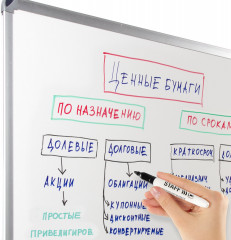 ЦЕННЫЕ БУМАГИ
ПО НАЗНАЧЕНИЮ
ПО СРОКАМ
ДОЛЕВЫЕ
ДОЛГОВЫЕ
КРАТКОСРОЧ
АКЦИИ
ОБЛИГАЦИИ
ПРОСТЫЕ
ПРИВЕДИГИРОВ
КУПОННЫЕ
ДИСКОНТНЫЕ
КОНВЕРТИРУЕМЫЕ
STAFF